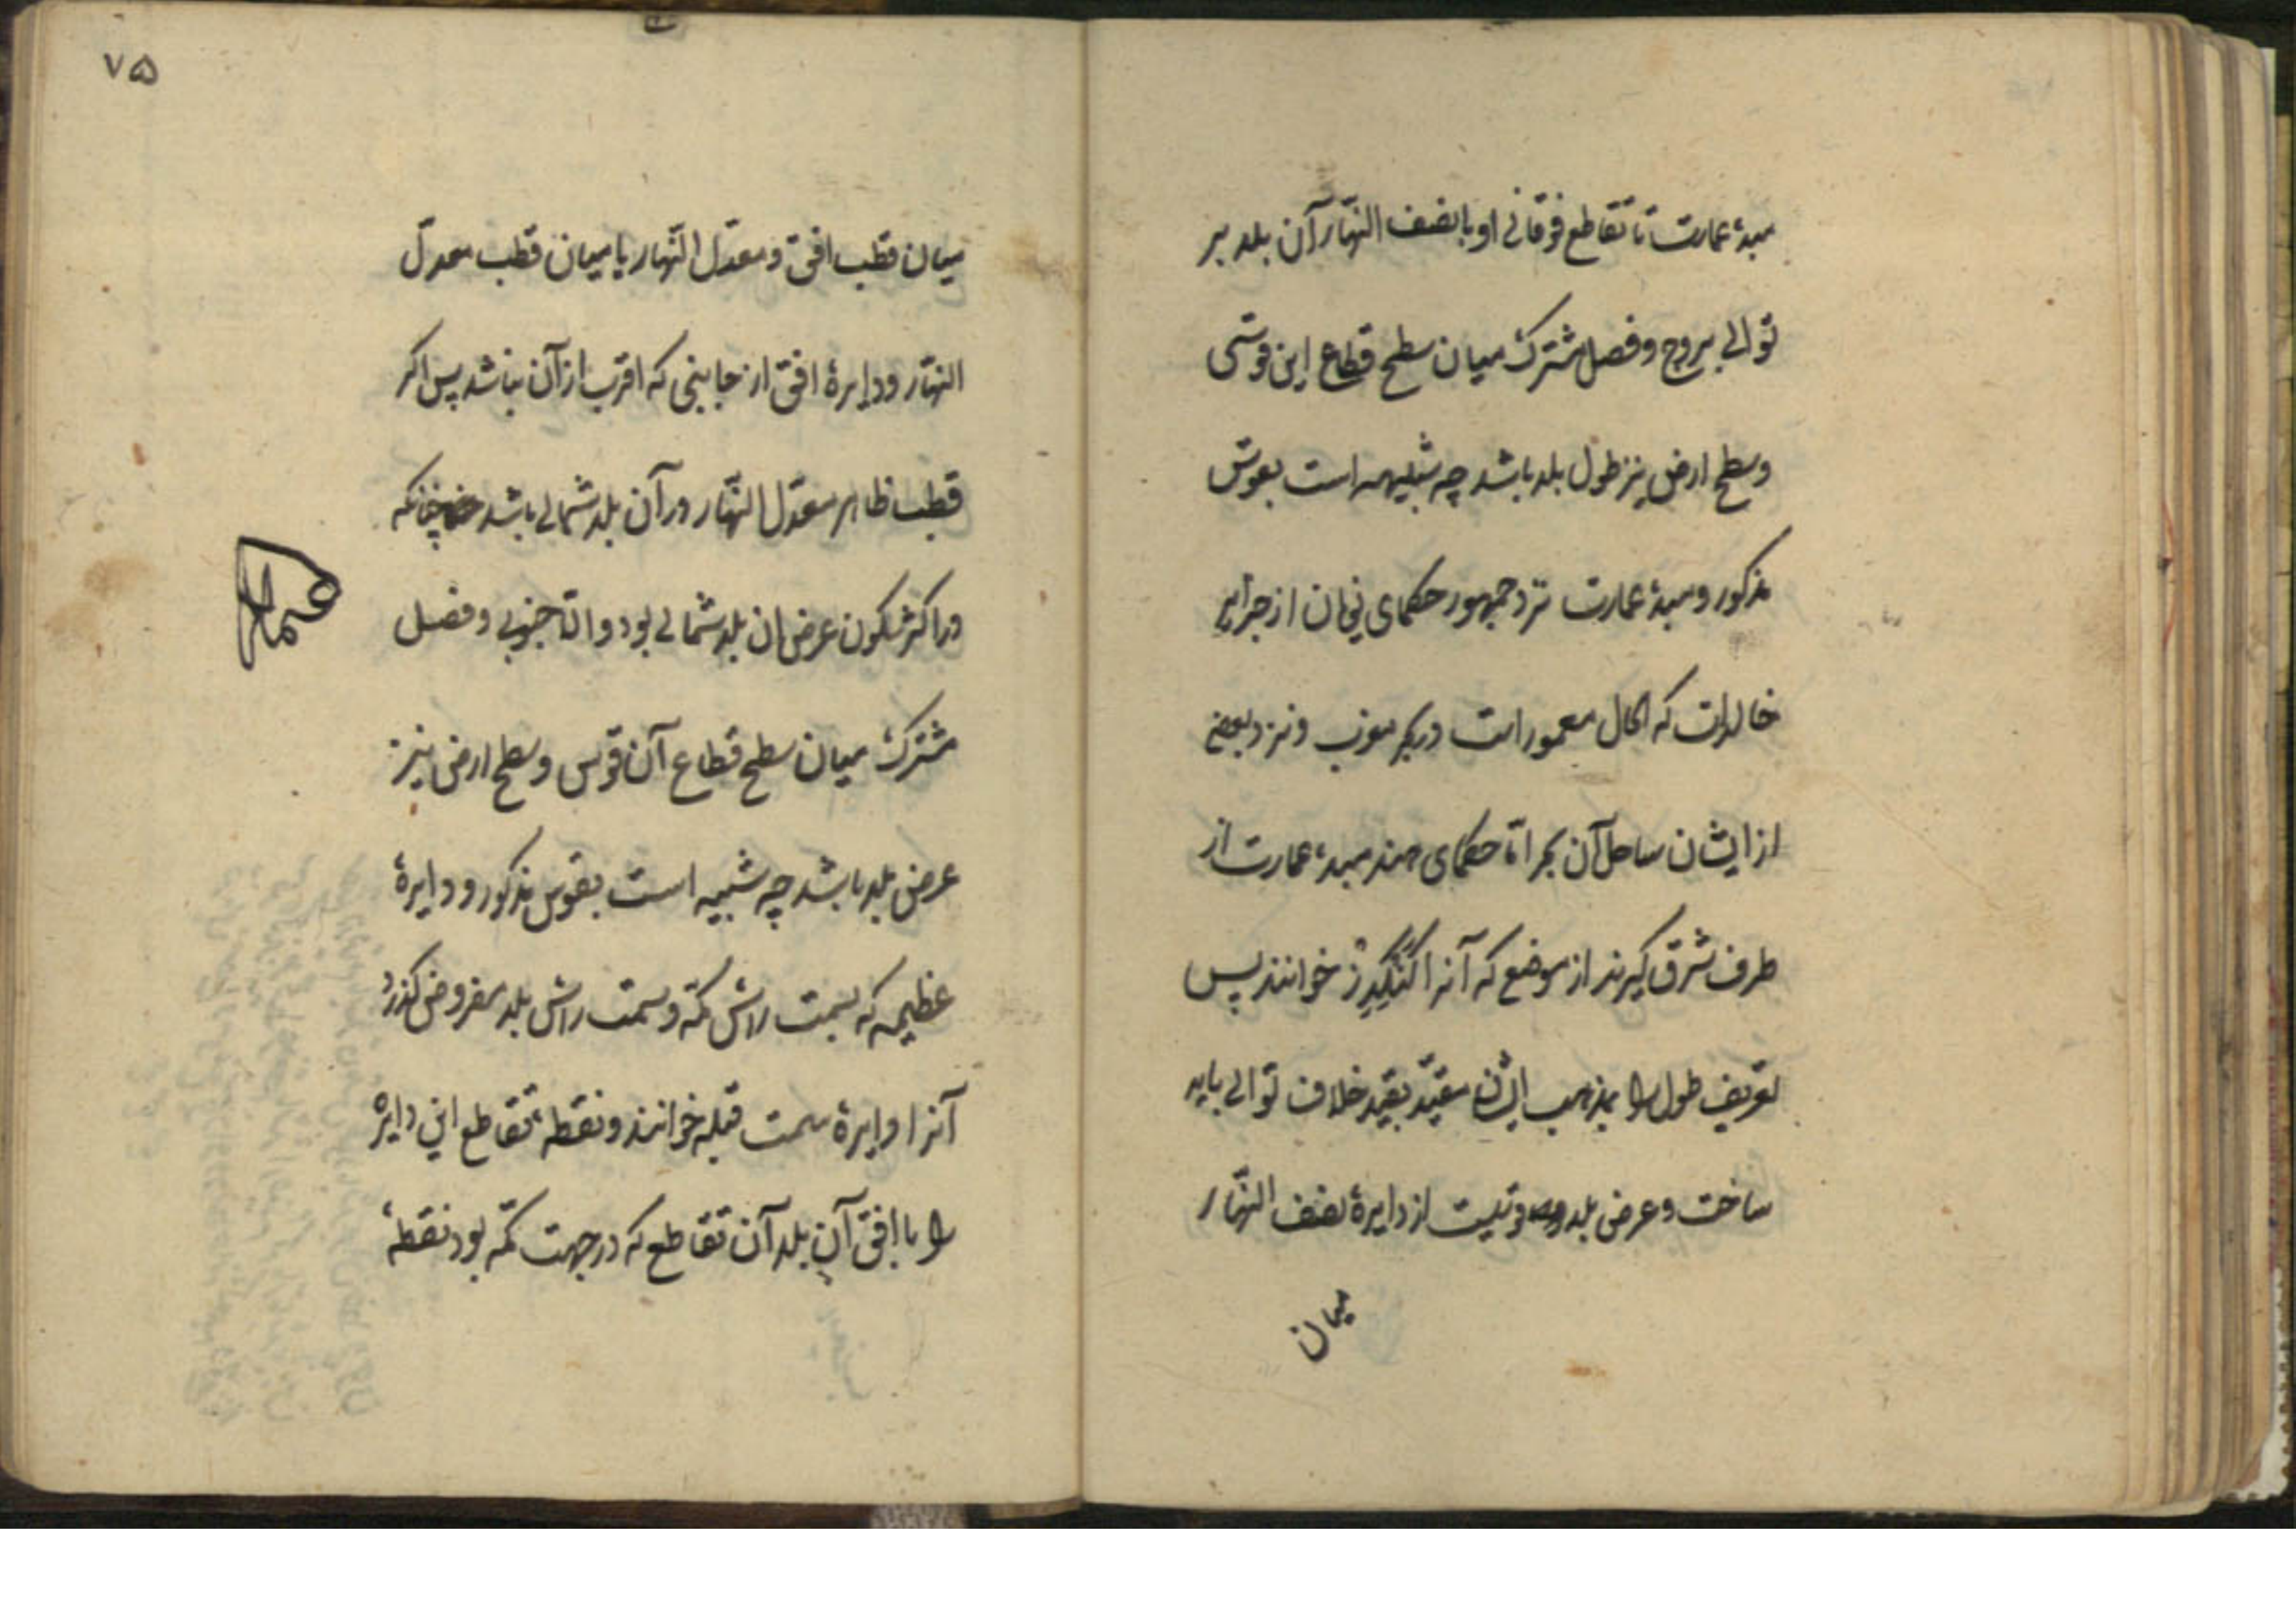 مبدء عمارت تا تقاطع فوقانی او با نصف النهار آن بلد بر
توالی بروج و فصل مشترک میان سطح قطاع این قوسی
وسطح ارض نیز طول بلد باشد چه شبیهه است بقوس
مذکور و مبدء عمارت نزد جمهور حکمای یونان از جزایر
خالدات که الحال معمور است در بحر مغرب و نزد بعضی
از ایشان ساحل آن بحر امّا حکمای هند مبدء عمارت از
طرف شرق گیرند از موضع که آنرا کنگدز خوانند پس
تعریف طول را بمذهب ایشان مقیّد بقید خلاف توالی باید
ساخت و عرض بلد قوسیست از دایرهٔ نصف النهّار
میان
۷۵
میان قطب افق و معدّل النّهار یا میان قطب معدّل
النهّار و دایرهٔ افق از جانبی که اقرب از آن نباشد پس اکر
قطب ظاهر معدّل النهّار در آن بلد شمالی باشد چنانکه
در اکثر مسکون عرض ان بلد شمالی بود و الّا جنوبی و فصل
مشترک میان سطح قطاع آن قوس و سطح ارض نیز
عرض بلد باشد چه شبیه است بقوس مذکور و دایرهٔ
عظیمه که بسمت راس مکّه و سمت راس بلد مفروض گذرد
آنرا دایرهٔ سمت قبله خوانند و نقطهٔ تقاطع این دایره
را با افق آن بلد آن تقاطع که در جهت مکّه بود نقطهٔ